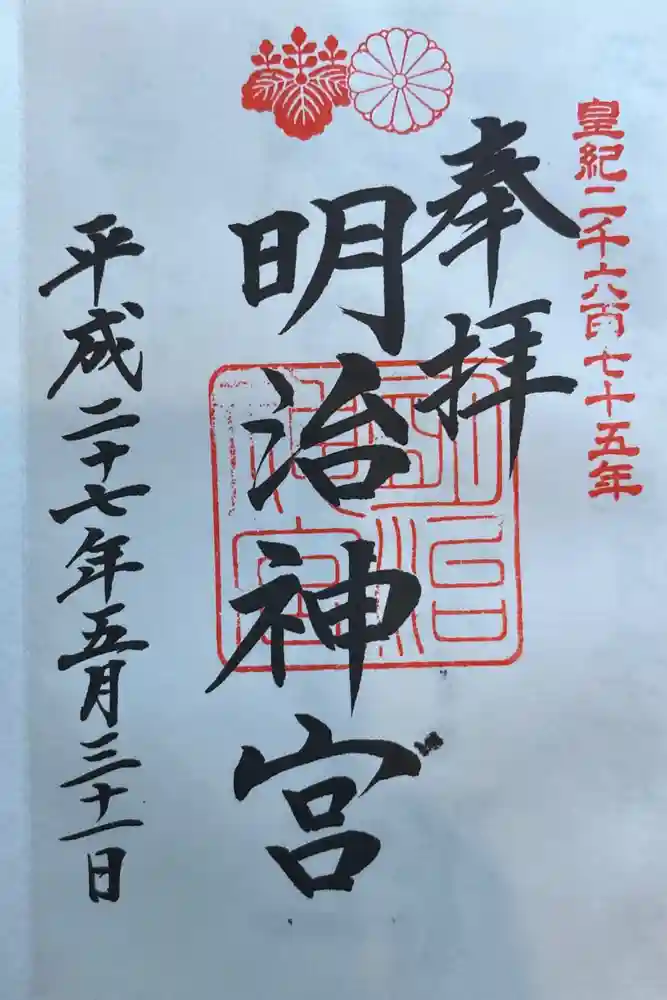 皇紀二千六百七十五年
奉拝
明治神宮
明治神宮
平成二十七年五月三十一日